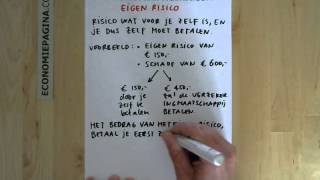 EIGEN RISICO
RISICO WAT VOOR JE ZELF IS, EN
JE DUS ZELF MOET BETALEN.
VOORBEELD: • EIGEN RISICO VAN
€ 150,-
• SCHADE VAN € 600,-
€ 150,- € 450,-
door je zal de VERZEKER
zelf te INGSMAATSCHAPPIJ
betalen BETALEN
HET BEDRAG VAN HET RISICO,
BETAAL JE EERST
ECONOMIEPAGINA.COM